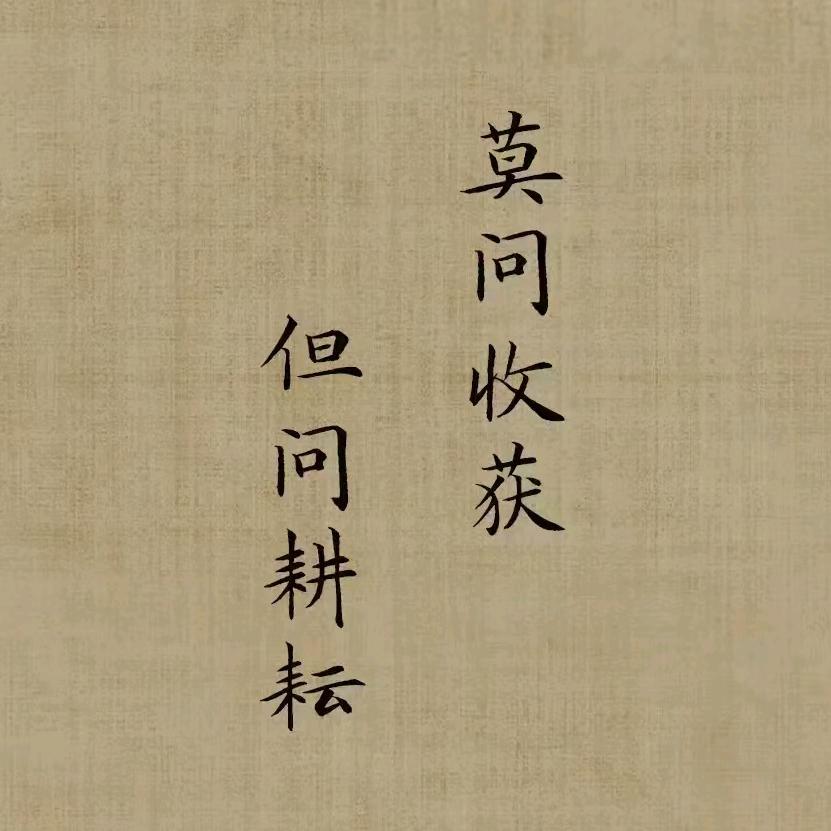 莫问收获
但问耕耘